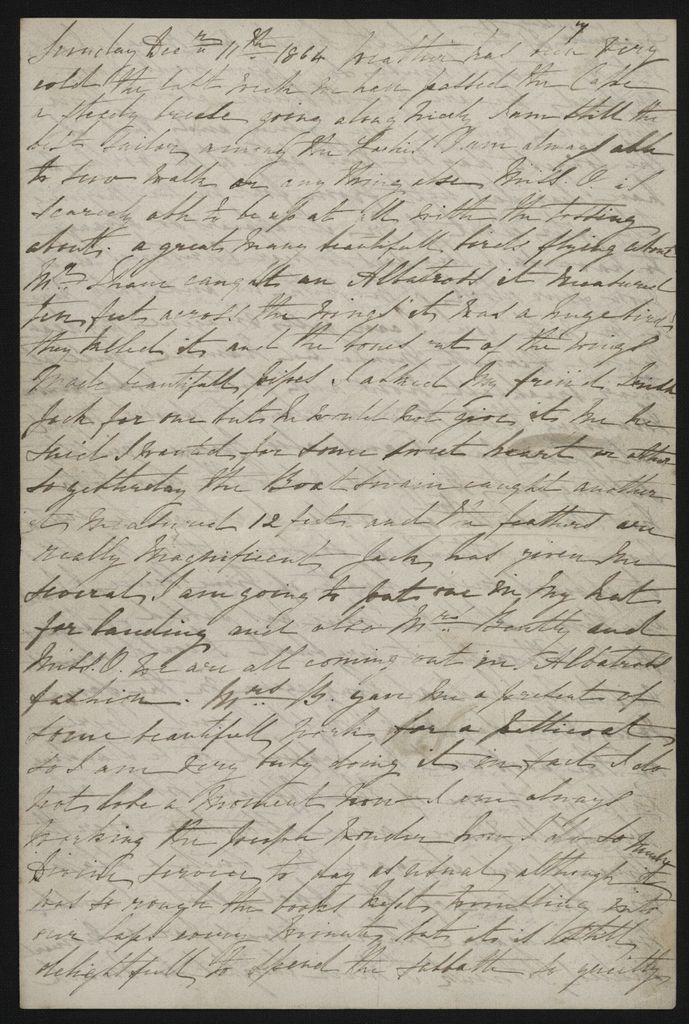 Sunday Decr 11th 1864 weather has been very
cold the last week we have passed the Cape
a steady breeze going along nicely I am still the
best Sailor among the Ladies I am always able
to sew walk or any thing else Miss. O. is
scarcely able to be up at all with the tossing
about. a great many beautifull birds flying about
Mr Shaw caught an Albatross it measured
ten feet across the wings it was a huge bird
they killed it and the bones out of the wings
made beautifull pipes I asked my friend
Jack for one but he would not give it me he
said I wanted for some sweet heart or other
so yesterday the Boatswain caught another
it measured 12 feet and the feathers are
really magnificent Jack has given me
several. I am going to put one in my hat
for landing and also Mrs and
Miss. O. we are all coming out in Albatross
fashion. Mrs B. gave me a present of
some beautifull work for a petticoat
so I am very busy doing it in fact I do
not lose a moment now I am always
working the people wonder how I do so much
Divine service to day as usual although it
was so rough the books kept tumbling into
our laps every minute but it is still
delightfull to spend the sabbath so quietly